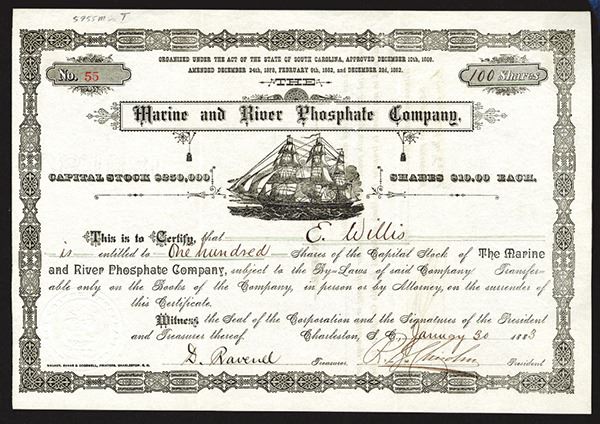 5755m T
ORGANIZED UNDER THE ACT OF THE STATE OF SOUTH CAROLINA, APPROVED DECEMBER
AMENDED DECEMBER 24th, 1879, FEBRUARY 9th, 1882, and DECEMBER 22d, 1882.
No. 55
THE
100 Shares
Marine and River Phosphate Company.
CAPITAL STOCK $250,000,
SHARES $10.00 EACH.
This is to Certify, that E. Willis
is entitled to One hundred Shares of the Capital Stock of The Marine
and River Phosphate Company, subject to the By-Laws of said Company Transfer-
able only on the Books of the Company, in person or by Attorney, on the surrender of
this Certificate.
Witness, the Seal of the Corporation and the Signatures of the President
and Treasurer thereof. Charleston, S. C., January 30 1883
D. Ravenel Treasurer. Chisolm President
WALKER, EVANS & COGSWELL, PRINTERS, CHARLESTON, S. C.